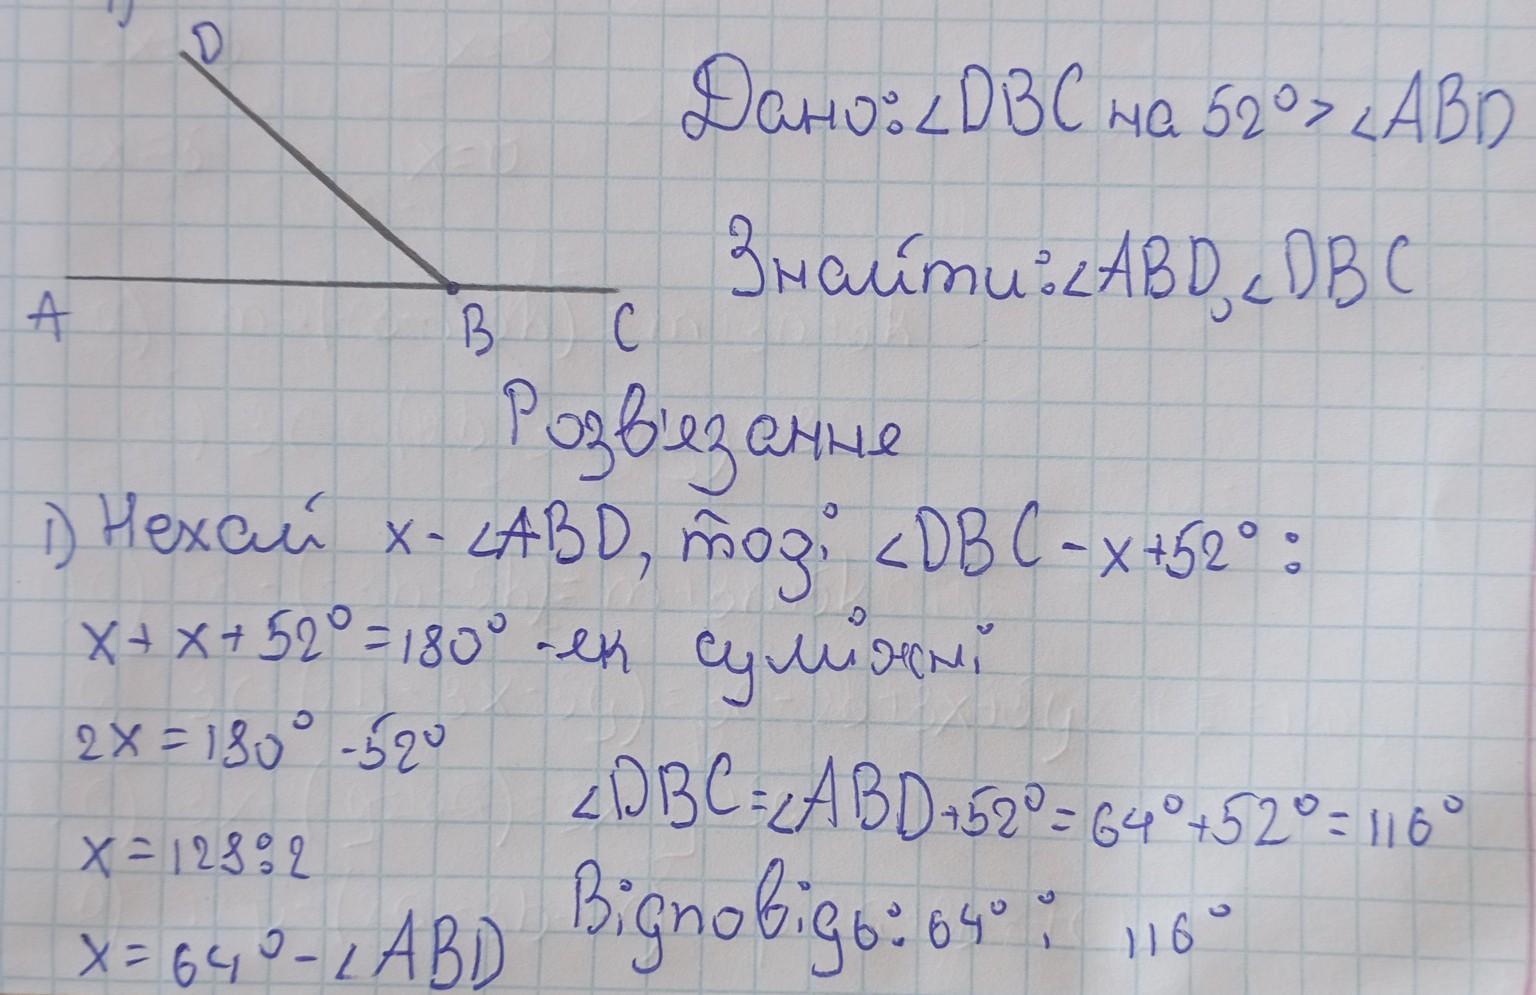 D
Дано: ∠DBC на 52° > ∠ABD
Знайти: ∠ABD, ∠DBC
A B C
Розв'язання
1) Нехай x - ∠ABD, тоді ∠DBC - x+52° :
x + x + 52° = 180° - як суміжні
2x = 180° - 52°
x = 128 : 2
x = 64° - ∠ABD
∠DBC = ∠ABD + 52° = 64° + 52° = 116°
Відповідь: 64° і 116°